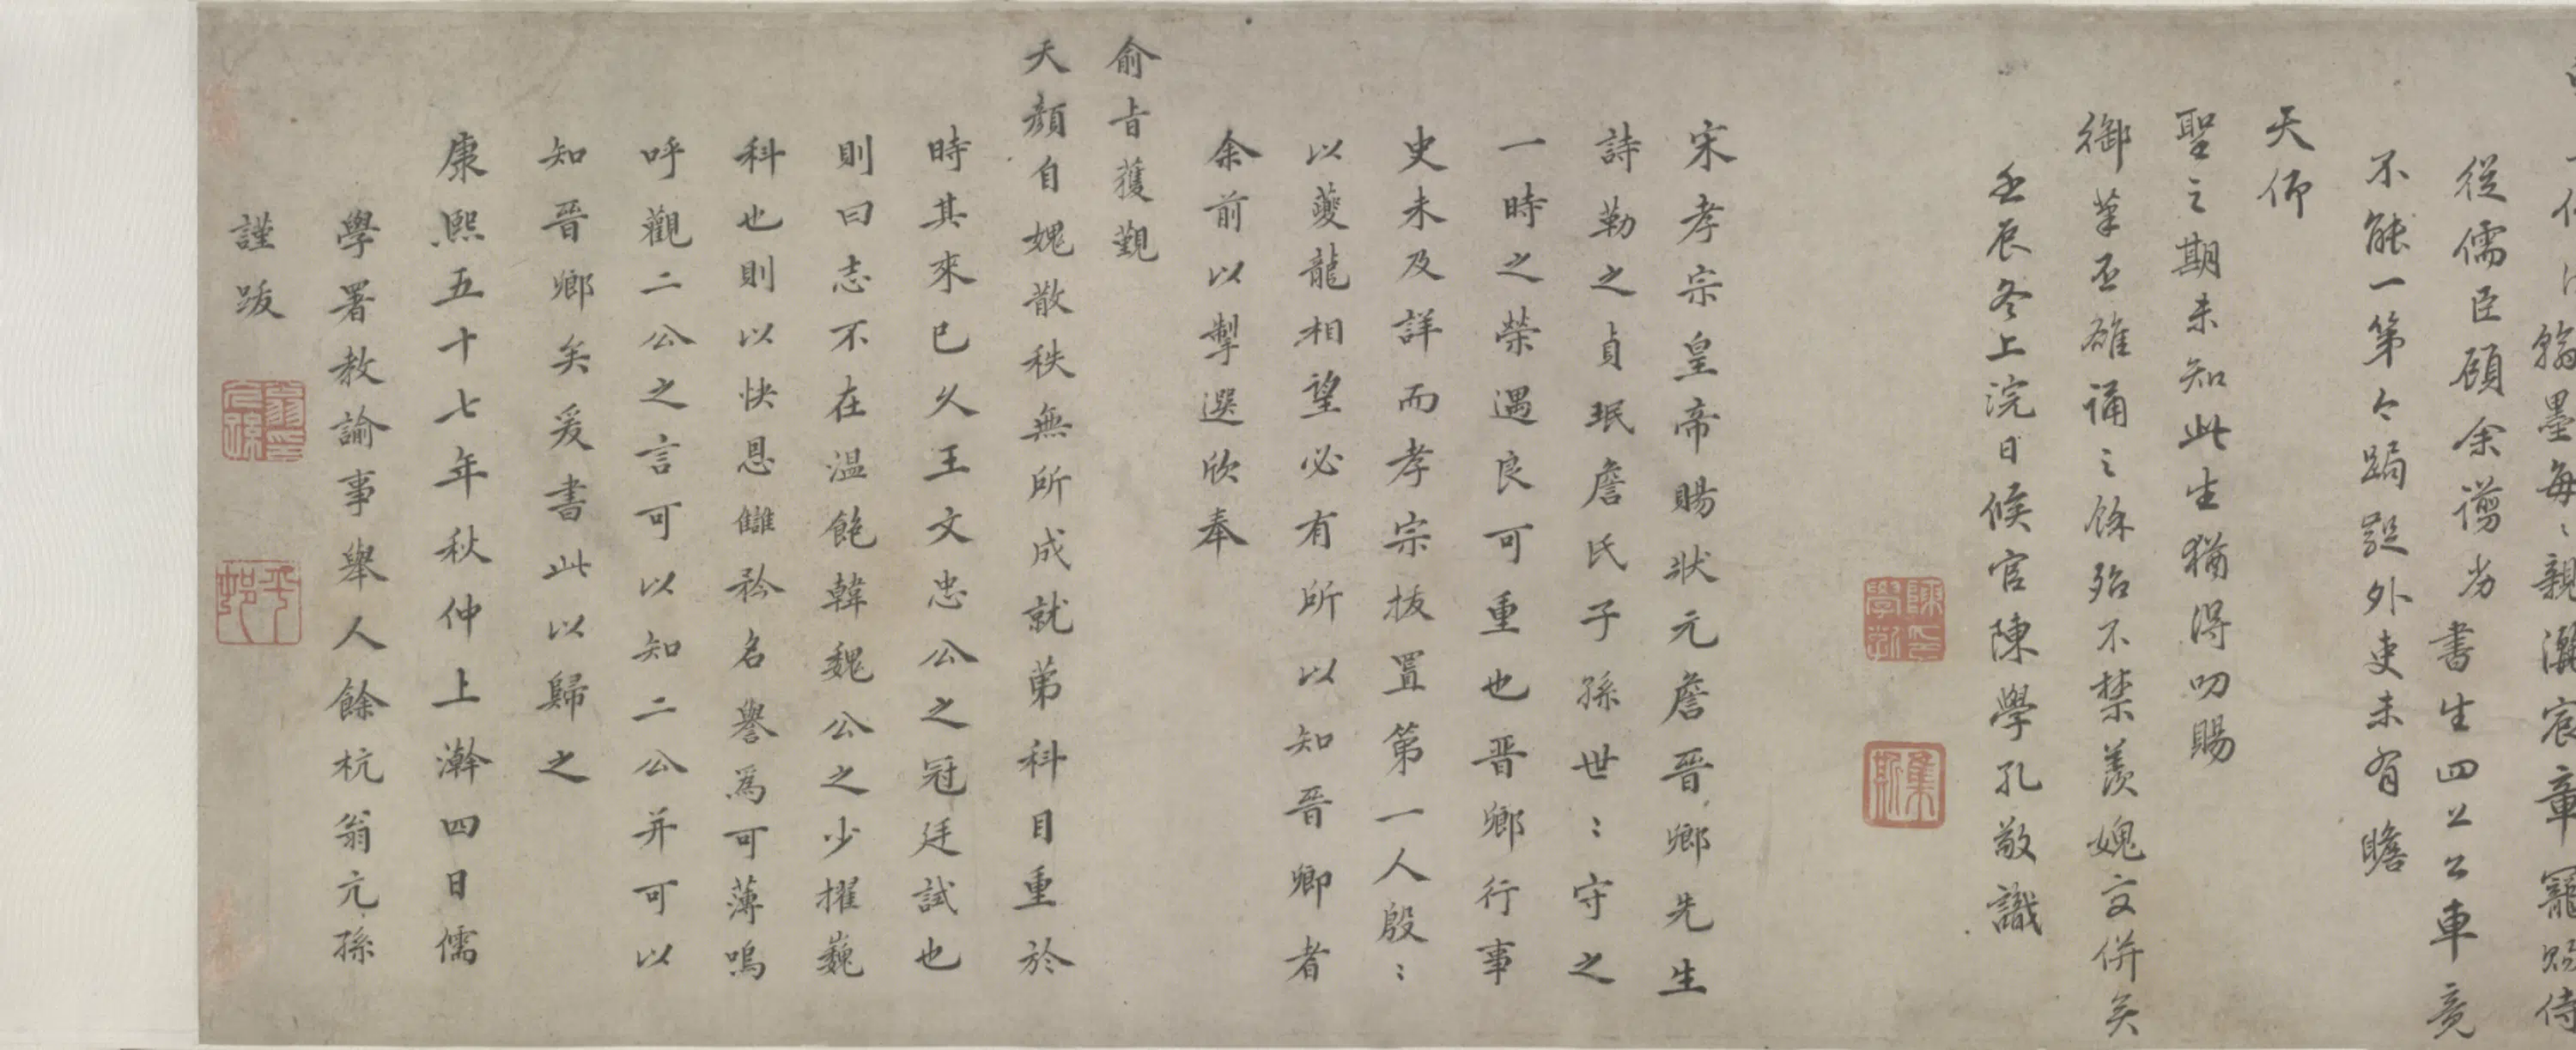 從儒臣顧余謭劣書生四上公車竟
不能一第今跼蹐外吏未有瞻
天仰
聖之期未知此生猶得叨賜
御筆否雒誦之餘殆不禁羨媿交併矣
壬辰冬上浣日候官陳學孔敬識
宋孝宗皇帝賜狀元詹晉卿先生
詩勒之貞珉詹氏子孫世〻守之
一時之榮遇良可重也晉卿行事
史未及詳而孝宗拔置第一人殷〻
以夔龍相望必有所以知晉卿者
余前以掣選欣奉
俞旨獲覲
天顏自媿散秩無所成就苐科目重於
時其來已久王文忠公之冠廷試也
則曰志不在溫飽韓魏公之少擢巍
科也則以快恩讎矜名譽為可薄嗚
呼觀二公之言可以知二公并可以
知晉卿矣爰書此以歸之
康熙五十七年秋仲上澣四日儒
學署教諭事舉人餘杭翁元孫
謹跋